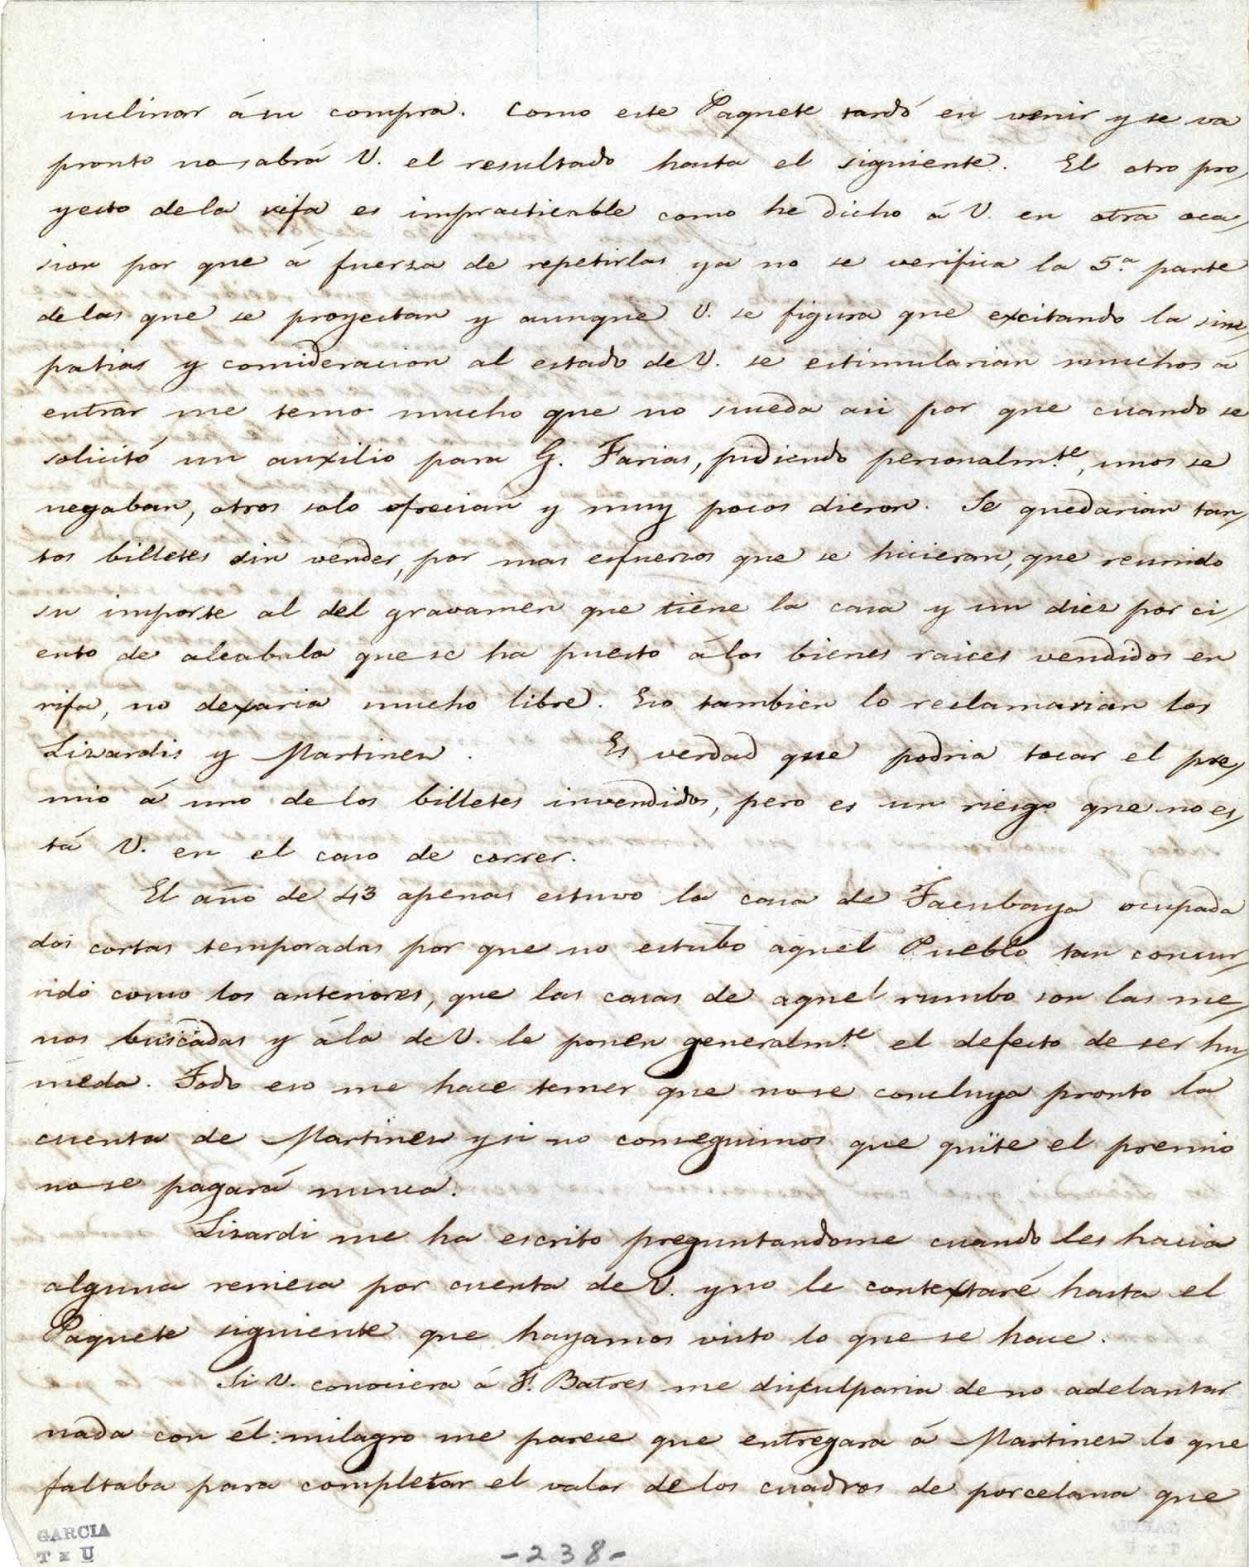 inclinar á su compra. Como este Paquete tardó en venir y se va
pronto no sabrá V. el resultado hasta el siguiente. El otro pro,
yecto de la rifa es impracticable como he dicho á V. en otra oca,
sion por que á fuerza de repetirlas ya no se verifica la 5.a parte
de las que se proyectan y aunque V. se figura que excitando la sim,
patias y consideracion al estado de V. se estimularian muchos a
entrar me temo mucho que no suceda asi por que cuando se
solicitó un auxilio para G. Farias, pidiendo personalm.te, unos se
negaban, otros solo ofrecian y muy pocos dieron. Se quedarian tan,
tos billetes sin vender, por mas esfuerzos que se hicieran, que reunido
su importe al del gravamen que tiene la casa y un diez por ci,
ento de alcabala que se ha puesto á los bienes raices vendidos en
rifa, no dexaria mucho libre. Eso tambien lo reclamarian los
Lizardis y Martinez. Es verdad que podria tocar el pre,
mio á uno de los billetes invendidos, pero es un riesgo que no es,
tá V. en el caso de correr.
El año de 43 apenas estuvo la casa de Tacubaya ocupada
dos cortas temporadas por que no estubo aquel Pueblo tan concur,
rido como los anteriores, que las casas de aquel rumbo son las me,
nos buscadas y á la de V. le ponen generalm.te el defecto de ser hu,
meda. Todo eso me hace temer que no se concluya pronto la
cuenta de Martinez y si no conseguimos que quite el premio
no se pagará nunca.
Lizardi me ha escrito preguntandome cuando les hacia
alguna remesa por cuenta de V. y no le contextaré hasta el
Paquete siguiente que hayamos visto lo que se hace.
Si V. conociera á F. Batres me disculparia de no adelantar
nada con él: milagro me parece que entregara á Martinez lo que
faltaba para completar el valor de los cuadros de porcelana que
GARCIA
T x U
-238-